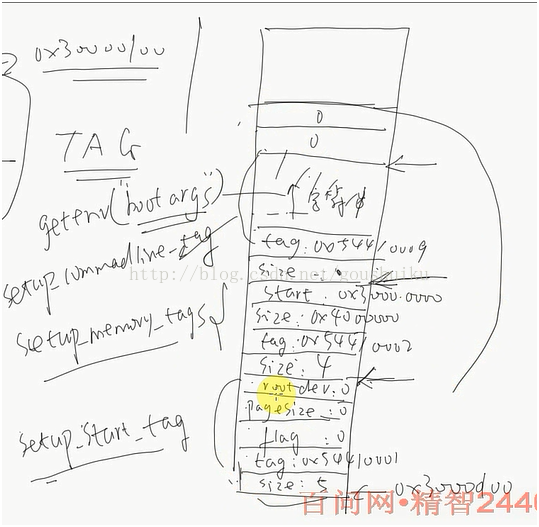 0x30000100
TAG
getenv("bootargs")
setup_commadline_tag
setup_memory_tags
setup_start_tag
0
0
字符串
tag:0x54410009
size
start:0x3000.0000
size:0x4000000
tag:0x54410002
size:4
rootdev:0
pagesize:0
flag:0
tag:0x54410001
size:5
0x3000d00
http://blog.csdn.net/goushuiku
百问网·精智2440